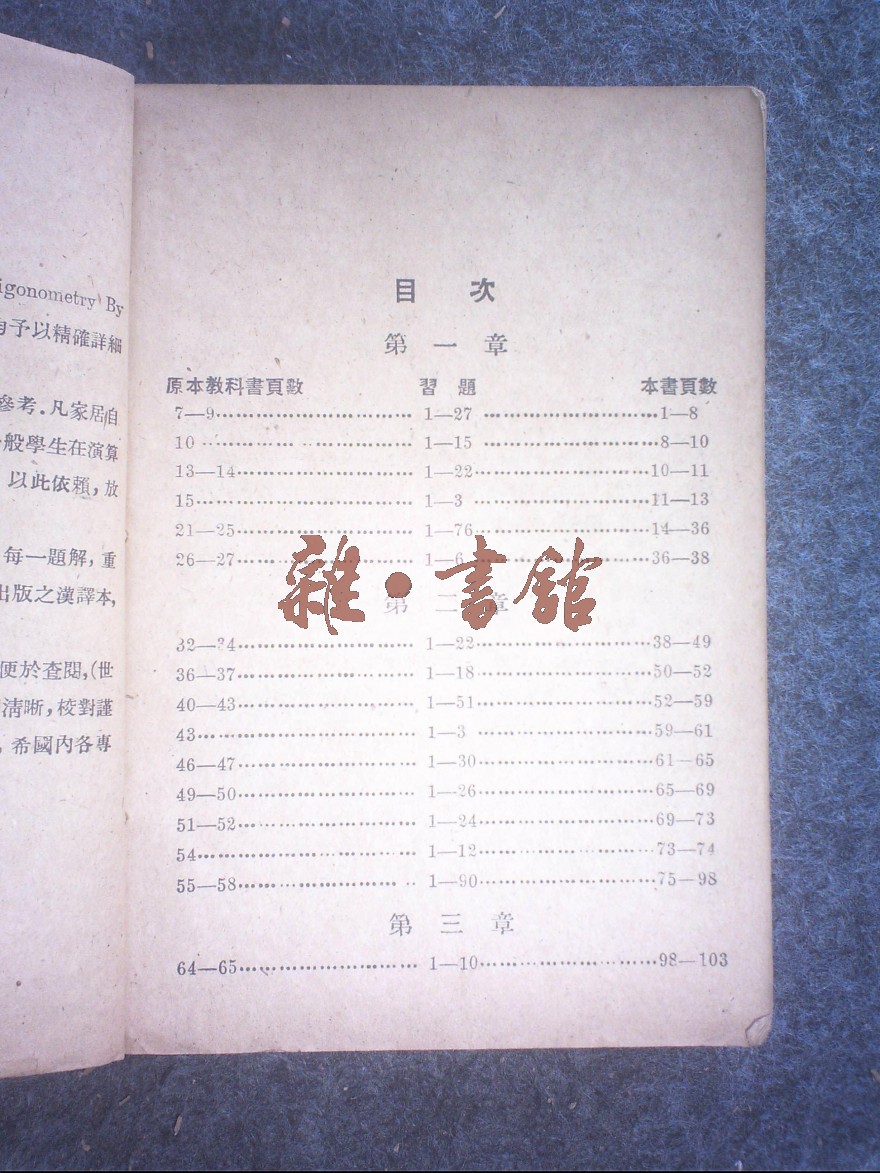 igonometry By
予以精確詳細
參考．凡家居自
般學生在演算
以此依賴，放
每一題解，重
出版之漢譯本，
便於查閱，(世
清晰，校對謹
希國內各專
目 次
第 一 章
原本教科書頁數 習 題 本書頁數
7—9 1—27 1—8
10 1—15 8—10
13—14 1—22 10—11
15 1—3 11—13
21—25 1—76 14—36
26—27 1—6 36—38
雜·書館
第 二 章
32—34 1—22 38—49
36—37 1—18 50—52
40—43 1—51 52—59
43 1—3 59—61
46—47 1—30 61—65
49—50 1—26 65—69
51—52 1—24 69—73
54 1—12 73—74
55—58 1—90 75—98
第 三 章
64—65 1—10 98—103